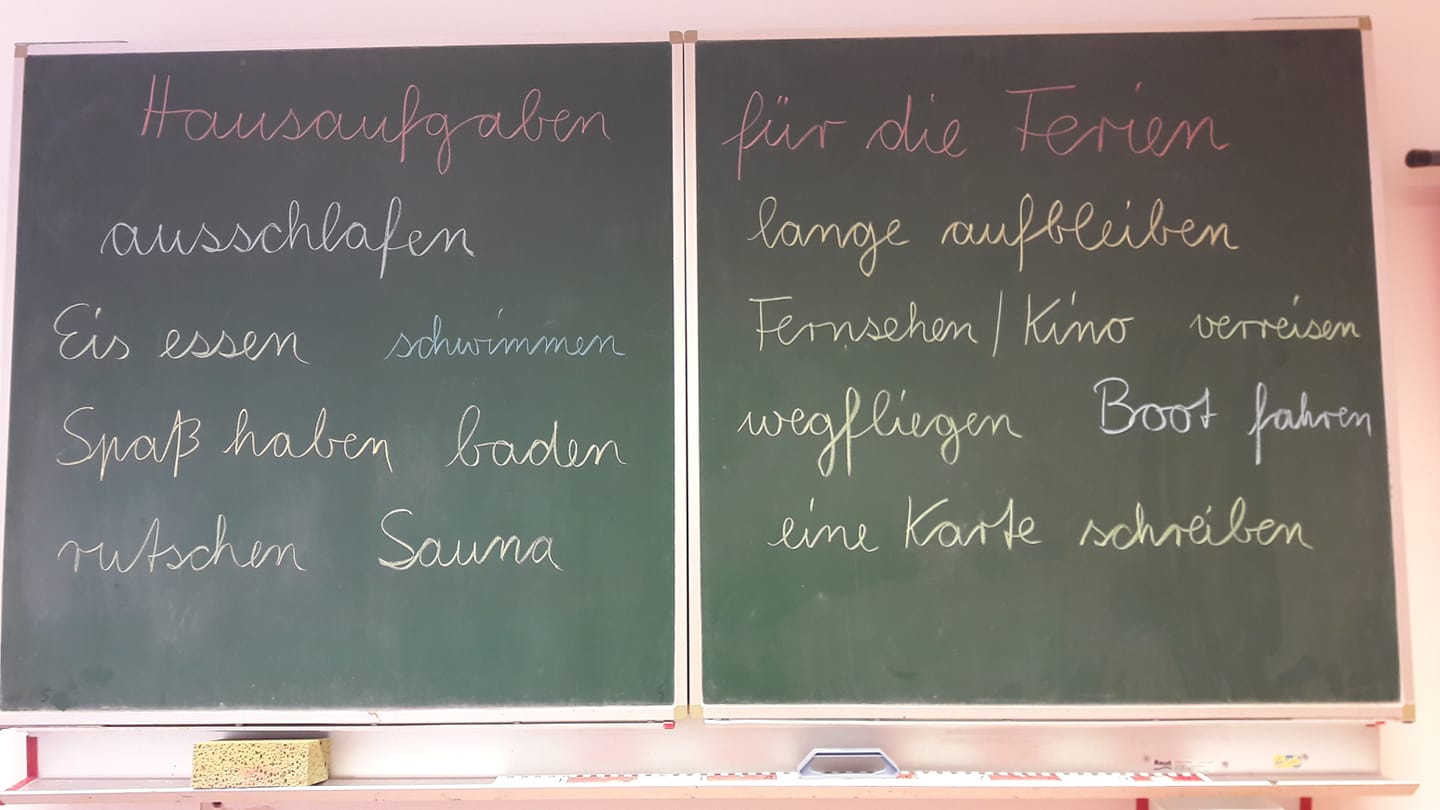 Hausaufgaben für die Ferien
ausschlafen
Eis essen schwimmen
Spaß haben baden
rutschen Sauna
lange aufbleiben
Fernsehen / Kino verreisen
wegfliegen Boot fahren
eine Karte schreiben